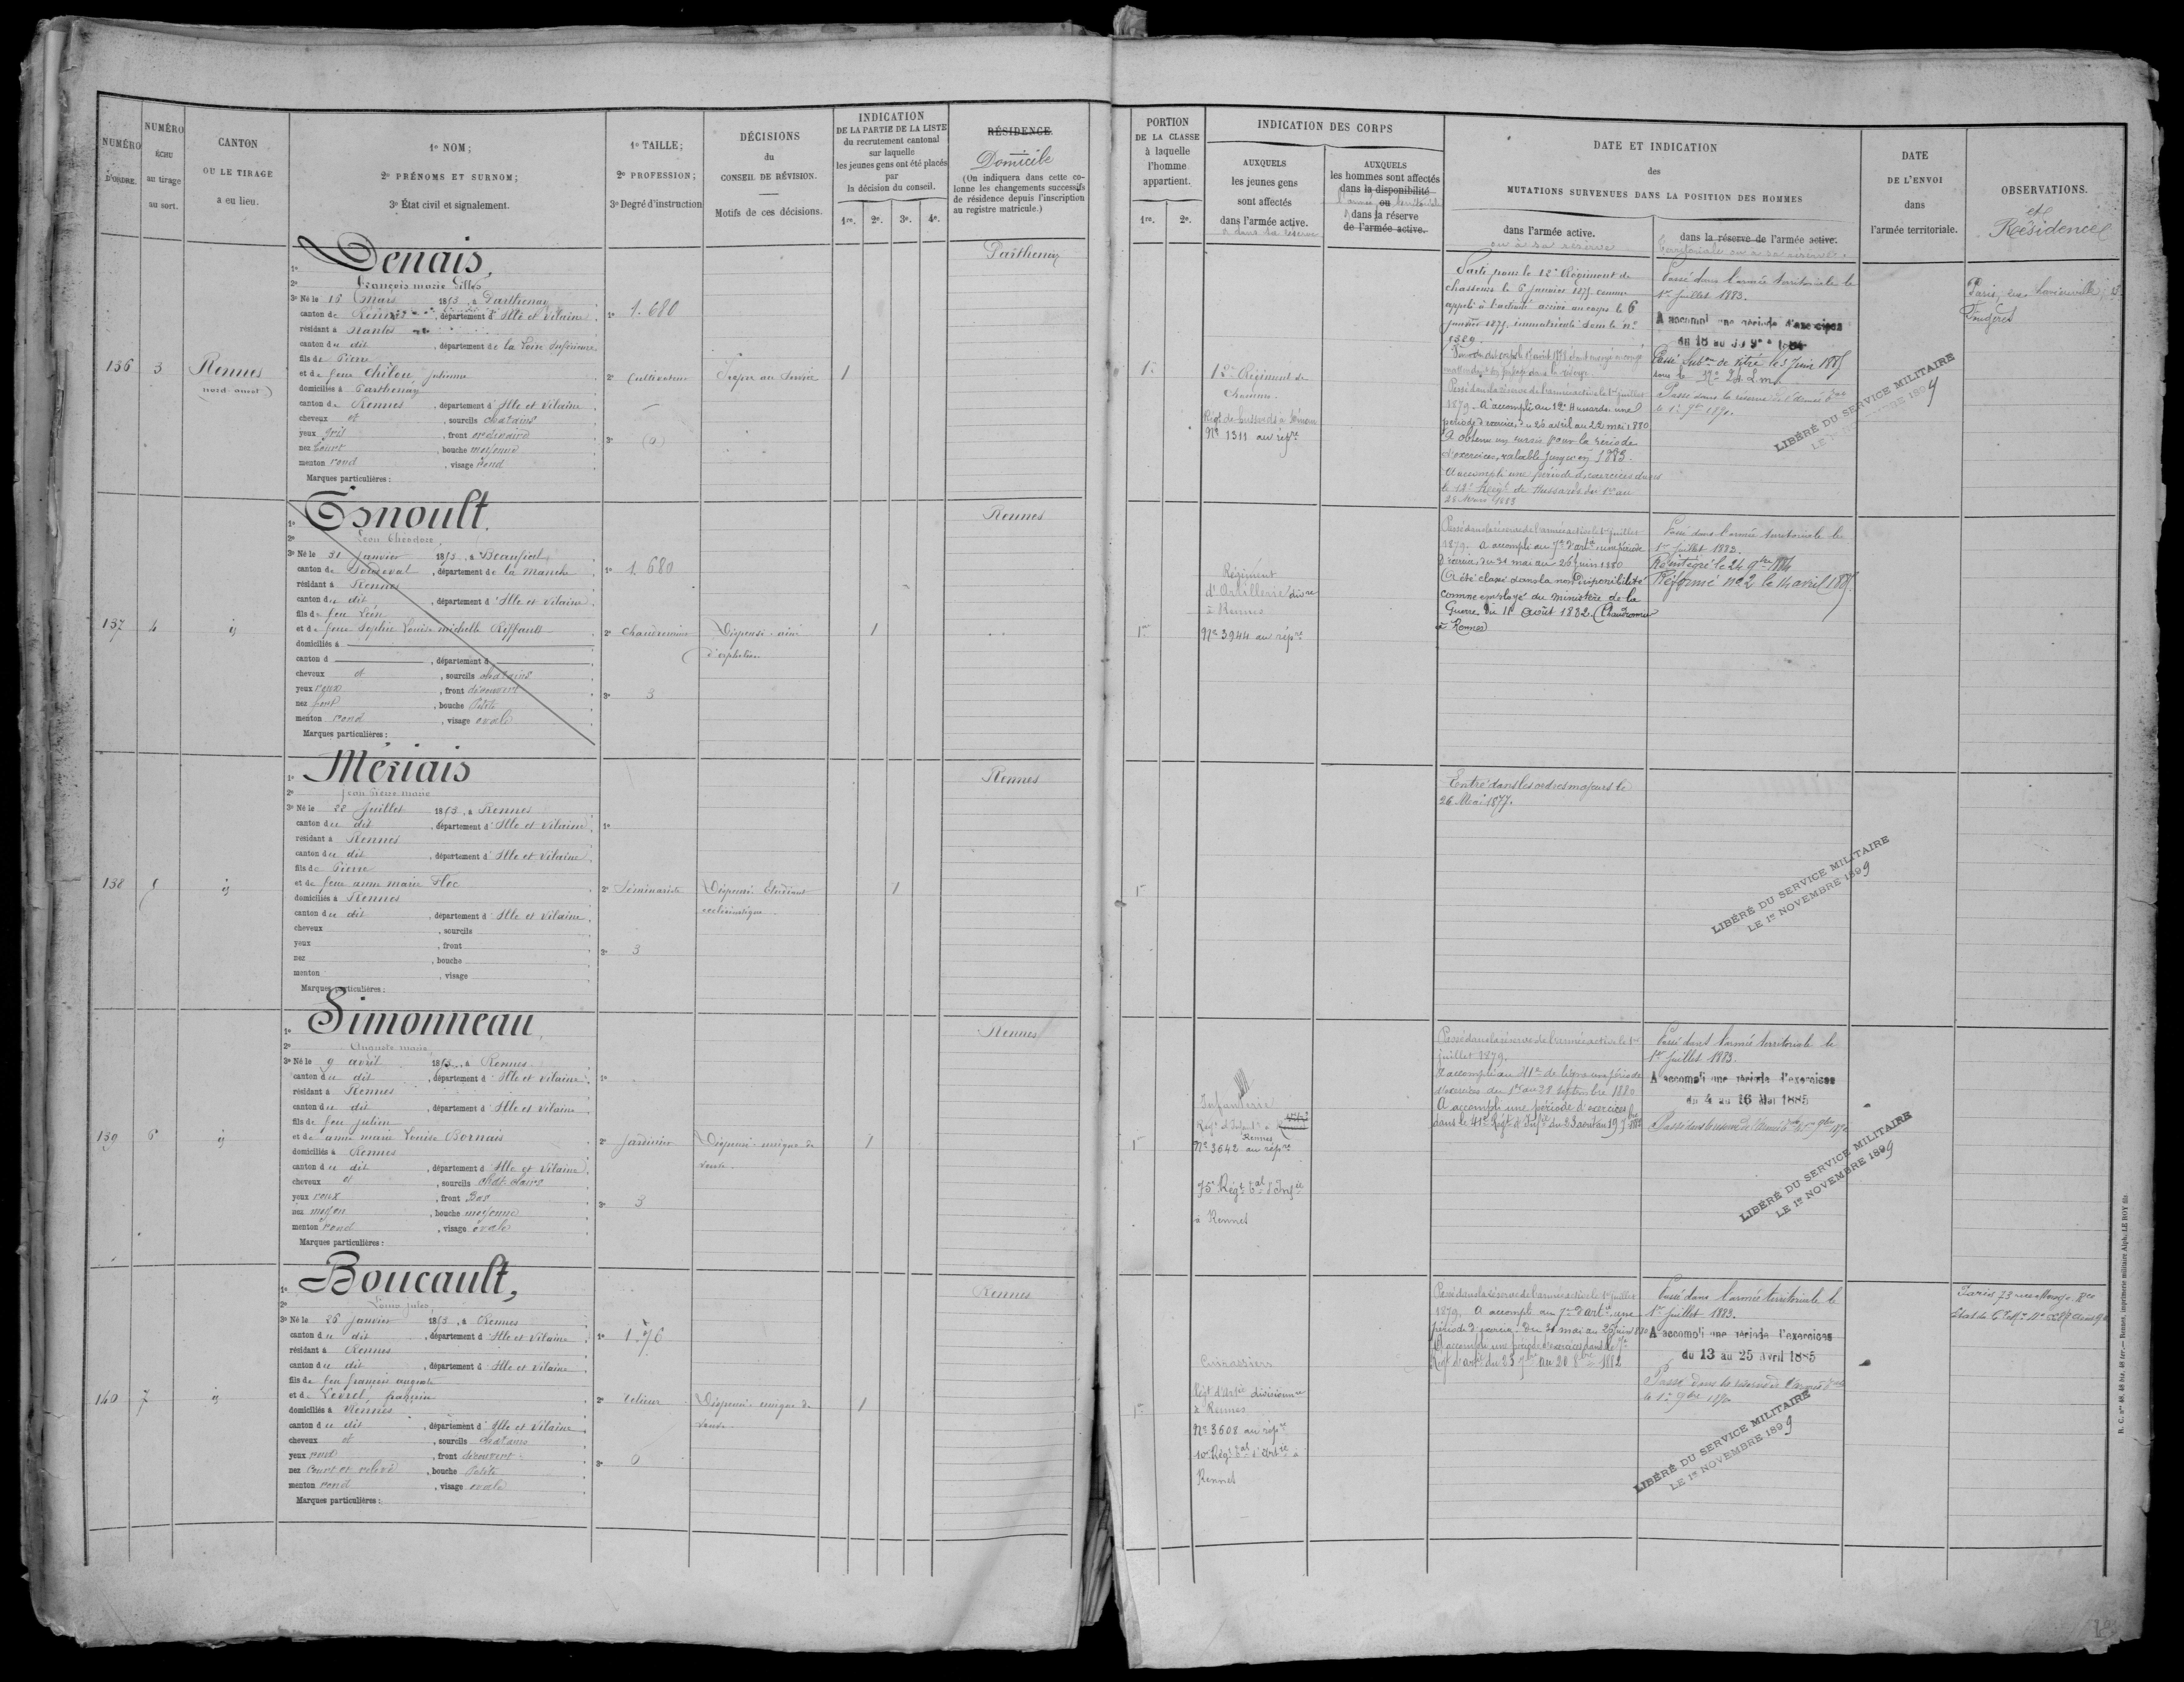 NUMÉRO D'ORDRE.
NUMÉRO ÉCHU au tirage au sort.
CANTON OU LE TIRAGE a eu lieu.
1o NOM;
2o PRÉNOMS ET SURNOM;
3o État civil et signalement.
1o TAILLE;
2o PROFESSION;
3o Degré d'instruction
DÉCISIONS
du
CONSEIL DE RÉVISION.
Motifs de ces décisions.
INDICATION
DE LA PARTIE DE LA LISTE
du recrutement cantonal
sur laquelle
les jeunes gens ont été placés
par
la décision du conseil.
1re. 2e. 3e. 4e.
RÉSIDENCE
Domicile
(On indiquera dans cette co-
lonne les changements successifs
de résidence depuis l'inscription
au registre matricule.)
PORTION
DE LA CLASSE
à laquelle
l'homme
appartient.
1re. 2e.
INDICATION DES CORPS
AUXQUELS
les jeunes gens
sont affectés
dans l'armée active.
& dans sa réserve
AUXQUELS
les hommes sont affectés
dans la disponibilité
ou
dans la réserve
de l'armée active.
DATE ET INDICATION
des
MUTATIONS SURVENUES DANS LA POSITION DES HOMMES
dans l'armée active.
ou à sa réserve
dans la réserve de l'armée active.
territoriale ou à sa réserve.
DATE
DE L'ENVOI
dans
l'armée territoriale.
OBSERVATIONS.
et
Résidence
136 3 Rennes
nord-ouest
1o Denais,
2o François marie Gilles
3o Né le 15 mars 1853, à Parthenay
canton de Rennes, département d'Ille et Vilaine
résidant à Nantes
canton du dit, département de la Loire Inférieure
fils de Pierre
et de feue Chilou Julienne
domiciliés à Parthenay
canton de Rennes, département d'Ille et Vilaine
cheveux et, sourcils chatains
yeux gris, front ordinaire
nez court, bouche moyenne
menton rond, visage rond
Marques particulières :
1o 1.680
2o Cultivateur
3o (0)
Propre au service
1
Parthenay
1re
12e Régiment de
Chasseurs.
Régt de hussards à Dinan
No 1311 au répre
Parti pour le 12e Régiment de
chasseurs le 6 janvier 1875. comme
appelé à l'activité arrivé au corps le 6
janvier 1875. immatriculé sous le no
1329.
Passé dans la réserve de l'armée active le 1er juillet
1879. A accompli au 12e Hussards une
période d'exercices du 25 avril au 22 mai 1880
A obtenu un sursis pour la période
d'exercices, valable jusqu'en 1883.
A accompli une période d'exercices dans
le 12e Régt de Hussards du 1er au
28 Mars 1883
Passé dans l'armée territoriale le
1er juillet 1883.
A accompli une période d'exercices
Passé Subon de Vitré le 3 juin 1885
Passé dans la réserve de l'armée tale
le 1er 9bre 1890.
LIBÉRÉ DU SERVICE MILITAIRE
Paris, rue
Fougères
137 4 id
1o Esnoult.
2o Léon Théodore,
3o Né le 31 janvier 1853, à Beauficel,
canton de Sourdeval, département de la Manche
résidant à Rennes
canton du dit, département d'Ille et Vilaine
fils de feu Léon
et de feue Sophie Louise michelle Riffault
domiciliés à
canton d, département d
cheveux et, sourcils chatains
yeux roux, front découvert
nez fort, bouche Petite
menton rond, visage ovale
Marques particulières :
1o 1.680
2o Chaudronnier
3o 3
Dispensé. ainé
d'orphelins
1
Rennes
1re
Régiment
d'Artillerie divre
à Rennes
No 3944 au répre
Passé dans la réserve de l'armée active le 1er juillet
1879. A accompli au 7e d'artie une période
d'exercices du 31 mai au 26 juin 1880
(A été classé dans la non Disponibilité
comme employé du ministère de la
Guerre du 11 Août 1882 (Chaudronnier
à Rennes)
Passé dans l'armée territoriale le
1er juillet 1883.
Réintégré le 24 9bre 1884
Réformé no 2 le 14 avril 1885
138 5 id
1o Mériais
2o Jean Pierre marie
3o Né le 22 juillet 1853, à Rennes
canton du dit, département d'Ille et Vilaine
résidant à Rennes
canton du dit, département d'Ille et Vilaine
fils de Pierre
et de feue anne marie Floc
domiciliés à Rennes
canton du dit, département d'Ille et Vilaine
cheveux, sourcils
yeux, front
nez, bouche
menton, visage
Marques particulières :
1o
2o Séminariste
3o 3
Dispensé. Etudiant
ecclésiastique.
1
Rennes
1re
Entré dans les ordres majeurs le
26 Mai 1877.
LIBÉRÉ DU SERVICE MILITAIRE
LE 1er NOVEMBRE 1899
139 6 id
1o Simonneau,
2o Auguste marie
3o Né le 9 avril 1853, à Rennes
canton du dit, département d'Ille et Vilaine
résidant à Rennes
canton du dit, département d'Ille et Vilaine
fils de feu Julien
et de anne marie Louise Bornais
domiciliés à Rennes
canton du dit, département d'Ille et Vilaine
cheveux et, sourcils chat. clairs
yeux roux, front Bas
nez moyen, bouche moyenne
menton rond, visage ovale
Marques particulières :
1o
2o Jardinier
3o 3
Dispensé. unique de
veuve.
1
Rennes
1re
Infanterie
Régt d'Infanterie à
Rennes
No 3642 au répre
75e Régt tal d'Infie
à Rennes
Passé dans la réserve de l'armée active le 1er
juillet 1879.
A accompli au 41e de ligne une période
d'exercices du 1er au 28 septembre 1880
A accompli une période d'exercices
dans le 41e Régt d'Infie du 23 août au 19 7bre 1882
Passé dans l'armée territoriale le
1er juillet 1883.
A accompli une période d'exercices
du 4 au 16 Mai 1885
Passé dans la réserve de l'armée tale le 1er 9bre 1890
LIBÉRÉ DU SERVICE MILITAIRE
LE 1er NOVEMBRE 1899
140 7 id
1o Boucault,
2o Louis Jules,
3o Né le 25 janvier 1853, à Rennes
canton du dit, département d'Ille et Vilaine
résidant à Rennes
canton du dit, département d'Ille et Vilaine
fils de feu françois auguste
et de Levrel,
domiciliés à Rennes
canton du dit, département d'Ille et Vilaine
cheveux et, sourcils chatains
yeux roux, front découvert
nez court et relevé, bouche Petite
menton rond, visage ovale
Marques particulières :
1o 1.76
2o Relieur
3o 0
Dispensé. unique de
veuve.
1
Rennes
1re
Cuirassiers
Régt d'Artie divisionre
à Rennes
No 3608 au répre
10e Régt tal d'Artie à
Rennes
Passé dans la réserve de l'armée active le 1er juillet
1879. A accompli au 7e d'artie une
période d'exercices du 31 mai au 26 juin 1880
A accompli une période d'exercices dans le 7e
Régt d'artie du 23 7bre au 20 8bre 1882
Passé dans l'armée territoriale le
1er juillet 1883.
A accompli une période d'exercices
du 13 au 25 Avril 1885
Passé dans la réserve de l'armée tale
le 1er 9bre 1890
LIBÉRÉ DU SERVICE MILITAIRE
LE 1er NOVEMBRE 1899
Paris 73 rue
R. C. nos 48, 48 bis, 48 ter. — Rennes, imprimerie militaire Alph. LE ROY fils